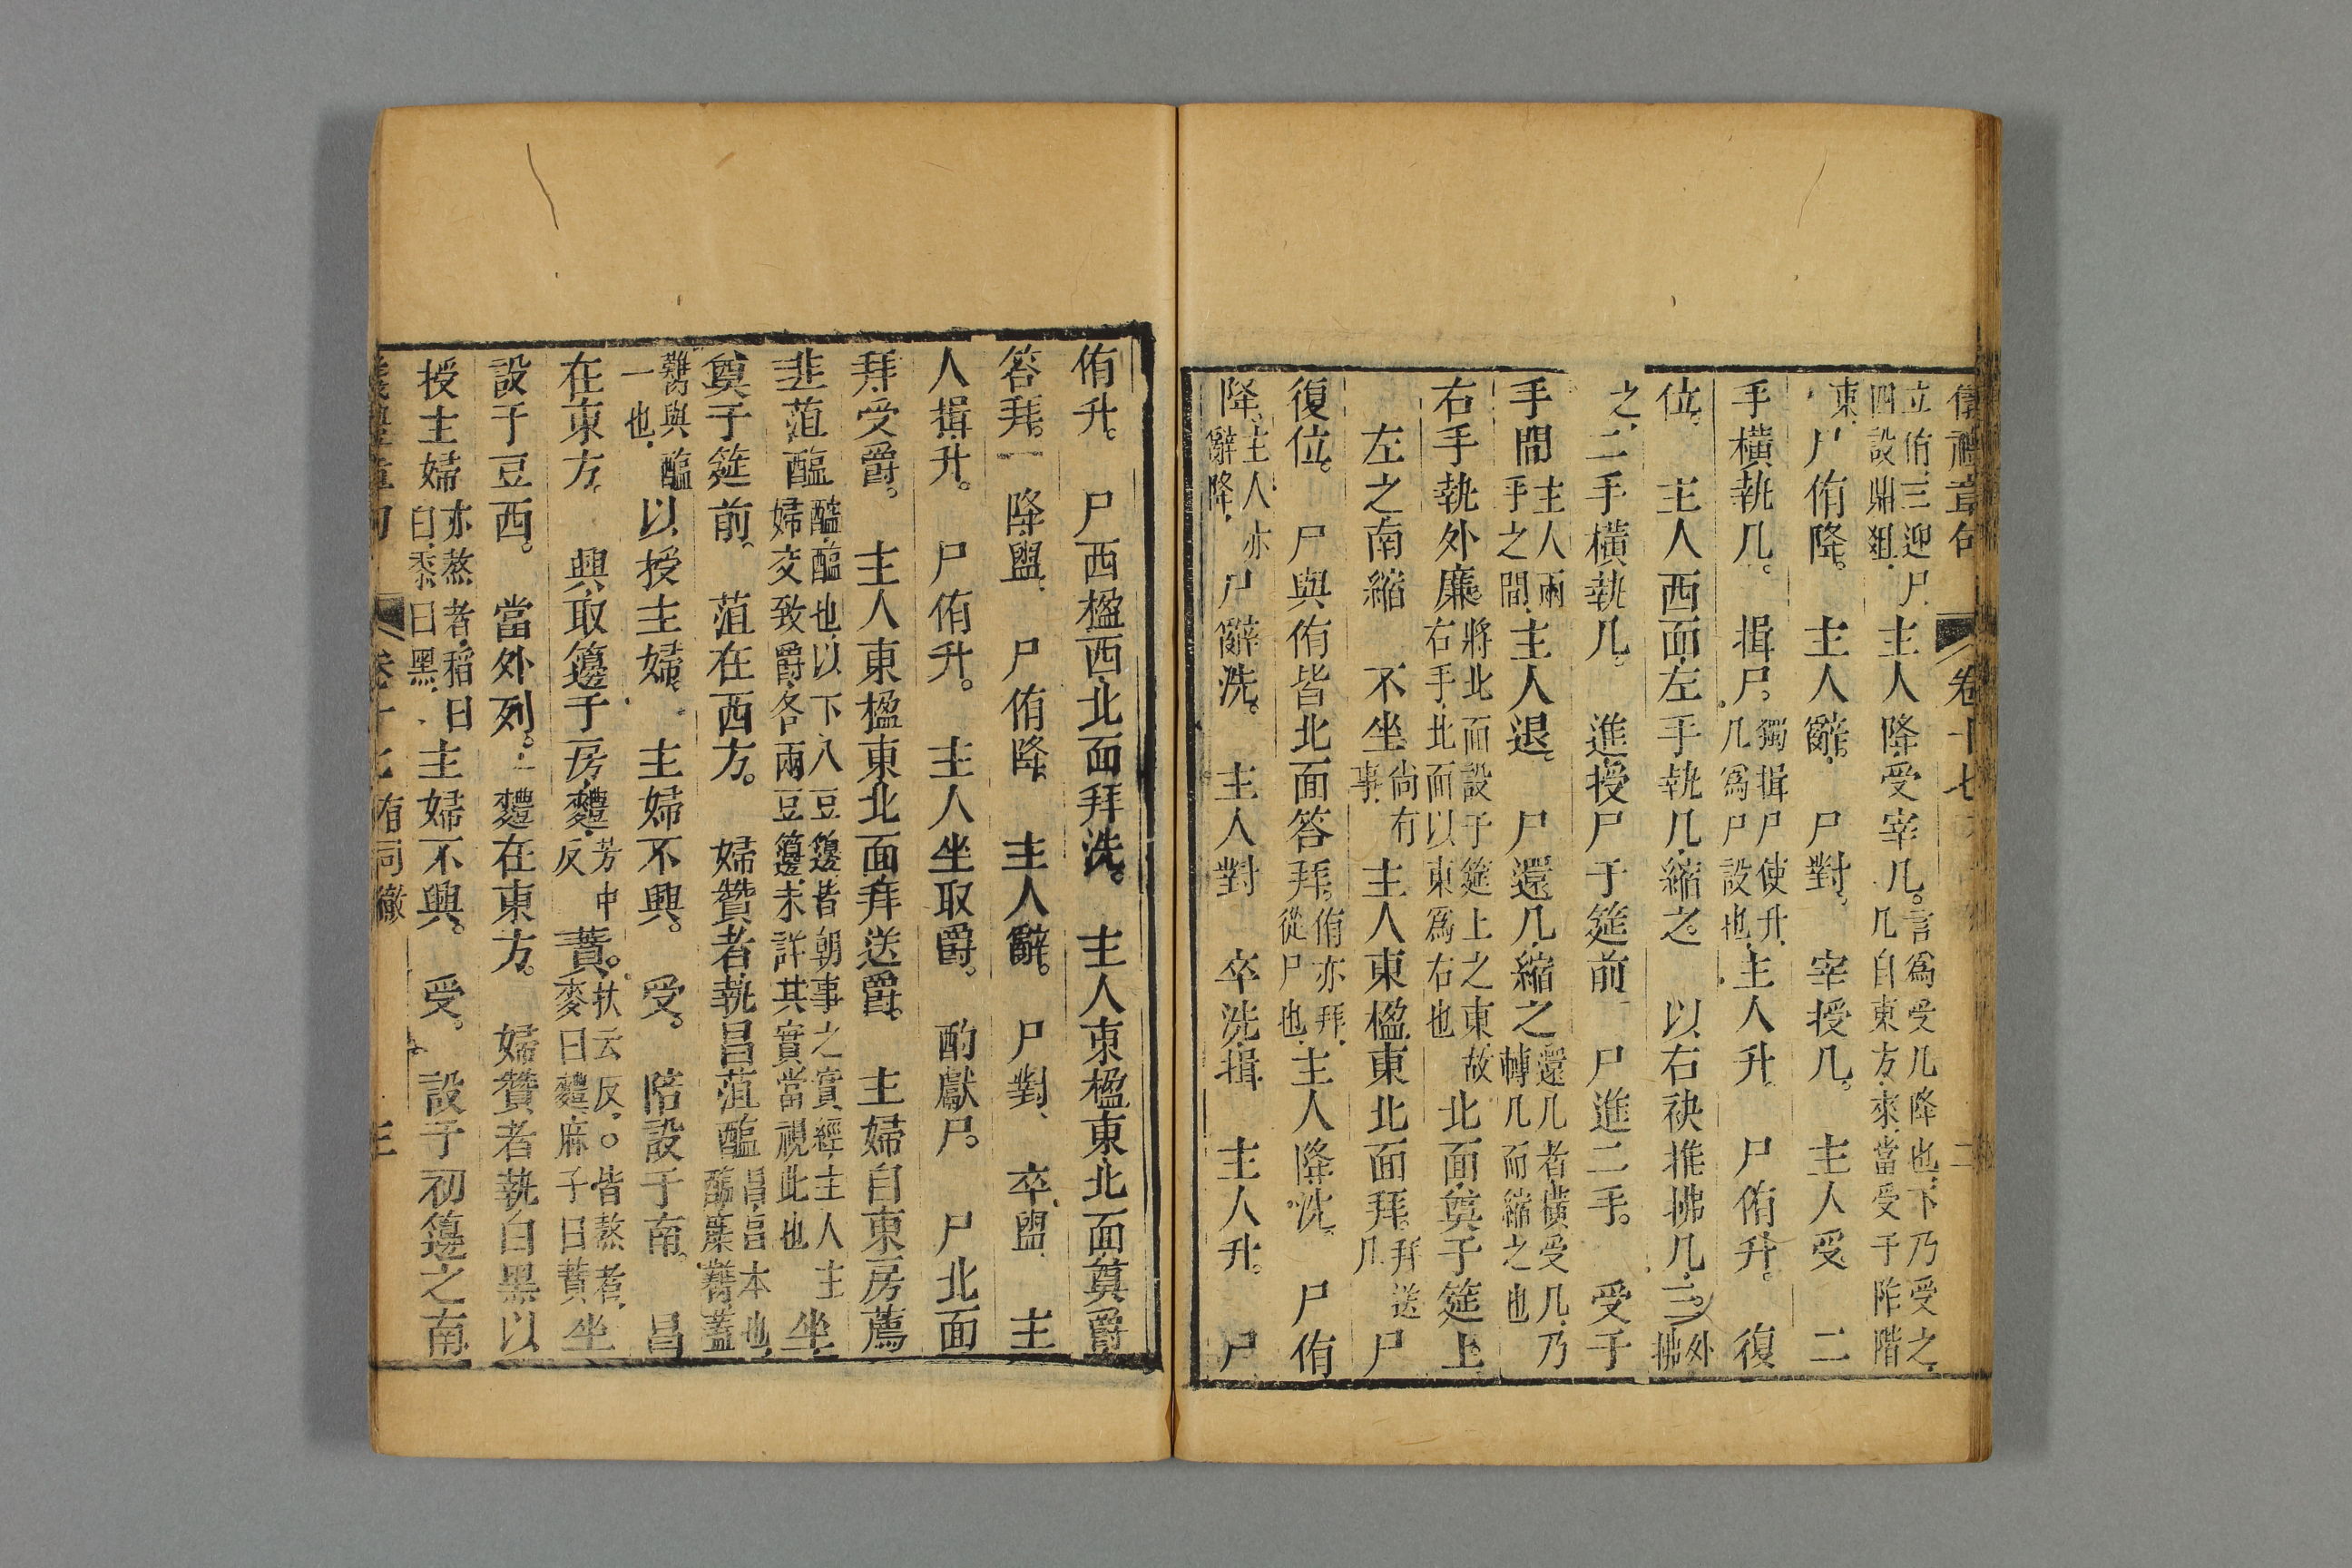 儀禮章句 卷十七 二
立侑三迎尸
四設鼎俎 主人降受宰几。言爲受几降也下乃受之
几自東方來當受于阼階
東 尸侑降。主人辭。尸對。宰授几。主人受 二
手橫執几。揖尸。獨揖尸使升
几爲尸設也 主人升。尸侑升。復
位。主人西面左手執几縮之。以右袂推拂几三。外
拂
之 二手橫執几。進授尸于筵前 尸進二手。受于
手間 主人兩
手之間 主人退。尸還几縮之 還几者橫受几乃
轉几而縮之也
右手執外廉 將北面設于筵上之東故
右手北面以東爲右也 北面奠于筵上
左之南縮 不坐 尚有
事 主人東楹東北面拜。拜送
几 尸
復位。尸與侑皆北面答拜。侑亦拜
從尸也 主人降洗。尸侑
降 主人亦
辭降 尸辭洗。主人對 卒洗揖 主人升。尸
侑升。尸西楹西北面拜洗。主人東楹東北面奠爵
答拜。降盥 尸侑降。主人辭。尸對 卒盥 主
人揖升。尸侑升。主人坐取爵。酌獻尸。尸北面
拜受爵。主人東楹東北面拜送爵。主婦自東房薦
韭菹醢 醯醢也以下八豆籩皆朝事之實經主人主
婦交致爵各兩豆籩未詳其實當視此也 坐
奠于筵前。菹在西方。婦贊者執昌菹醢 昌昌本也
醢麋臡蓋
臡與醢
一也 以授主婦。主婦不興。受。陪設于南。昌
在東方。興取籩于房麷 芳中
反 蕡。扶云反。○皆熬者
麥曰麷麻子曰蕡 坐
設于豆西。當外列。麷在東方。婦贊者執白黑以
授主婦 亦熬者稻曰
白黍曰黑 主婦不興。受。設于初籩之南
儀禮章句 卷十七 有司徹 三